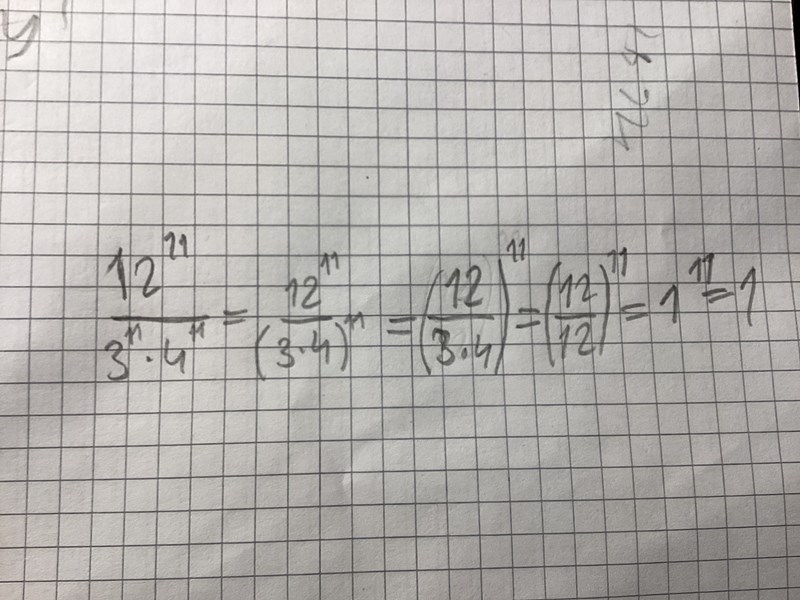 y
12^11 / (3^11 · 4^11) = 12^11 / (3·4)^11 = (12 / (3·4))^11 = (12/12)^11 = 1^11 = 1